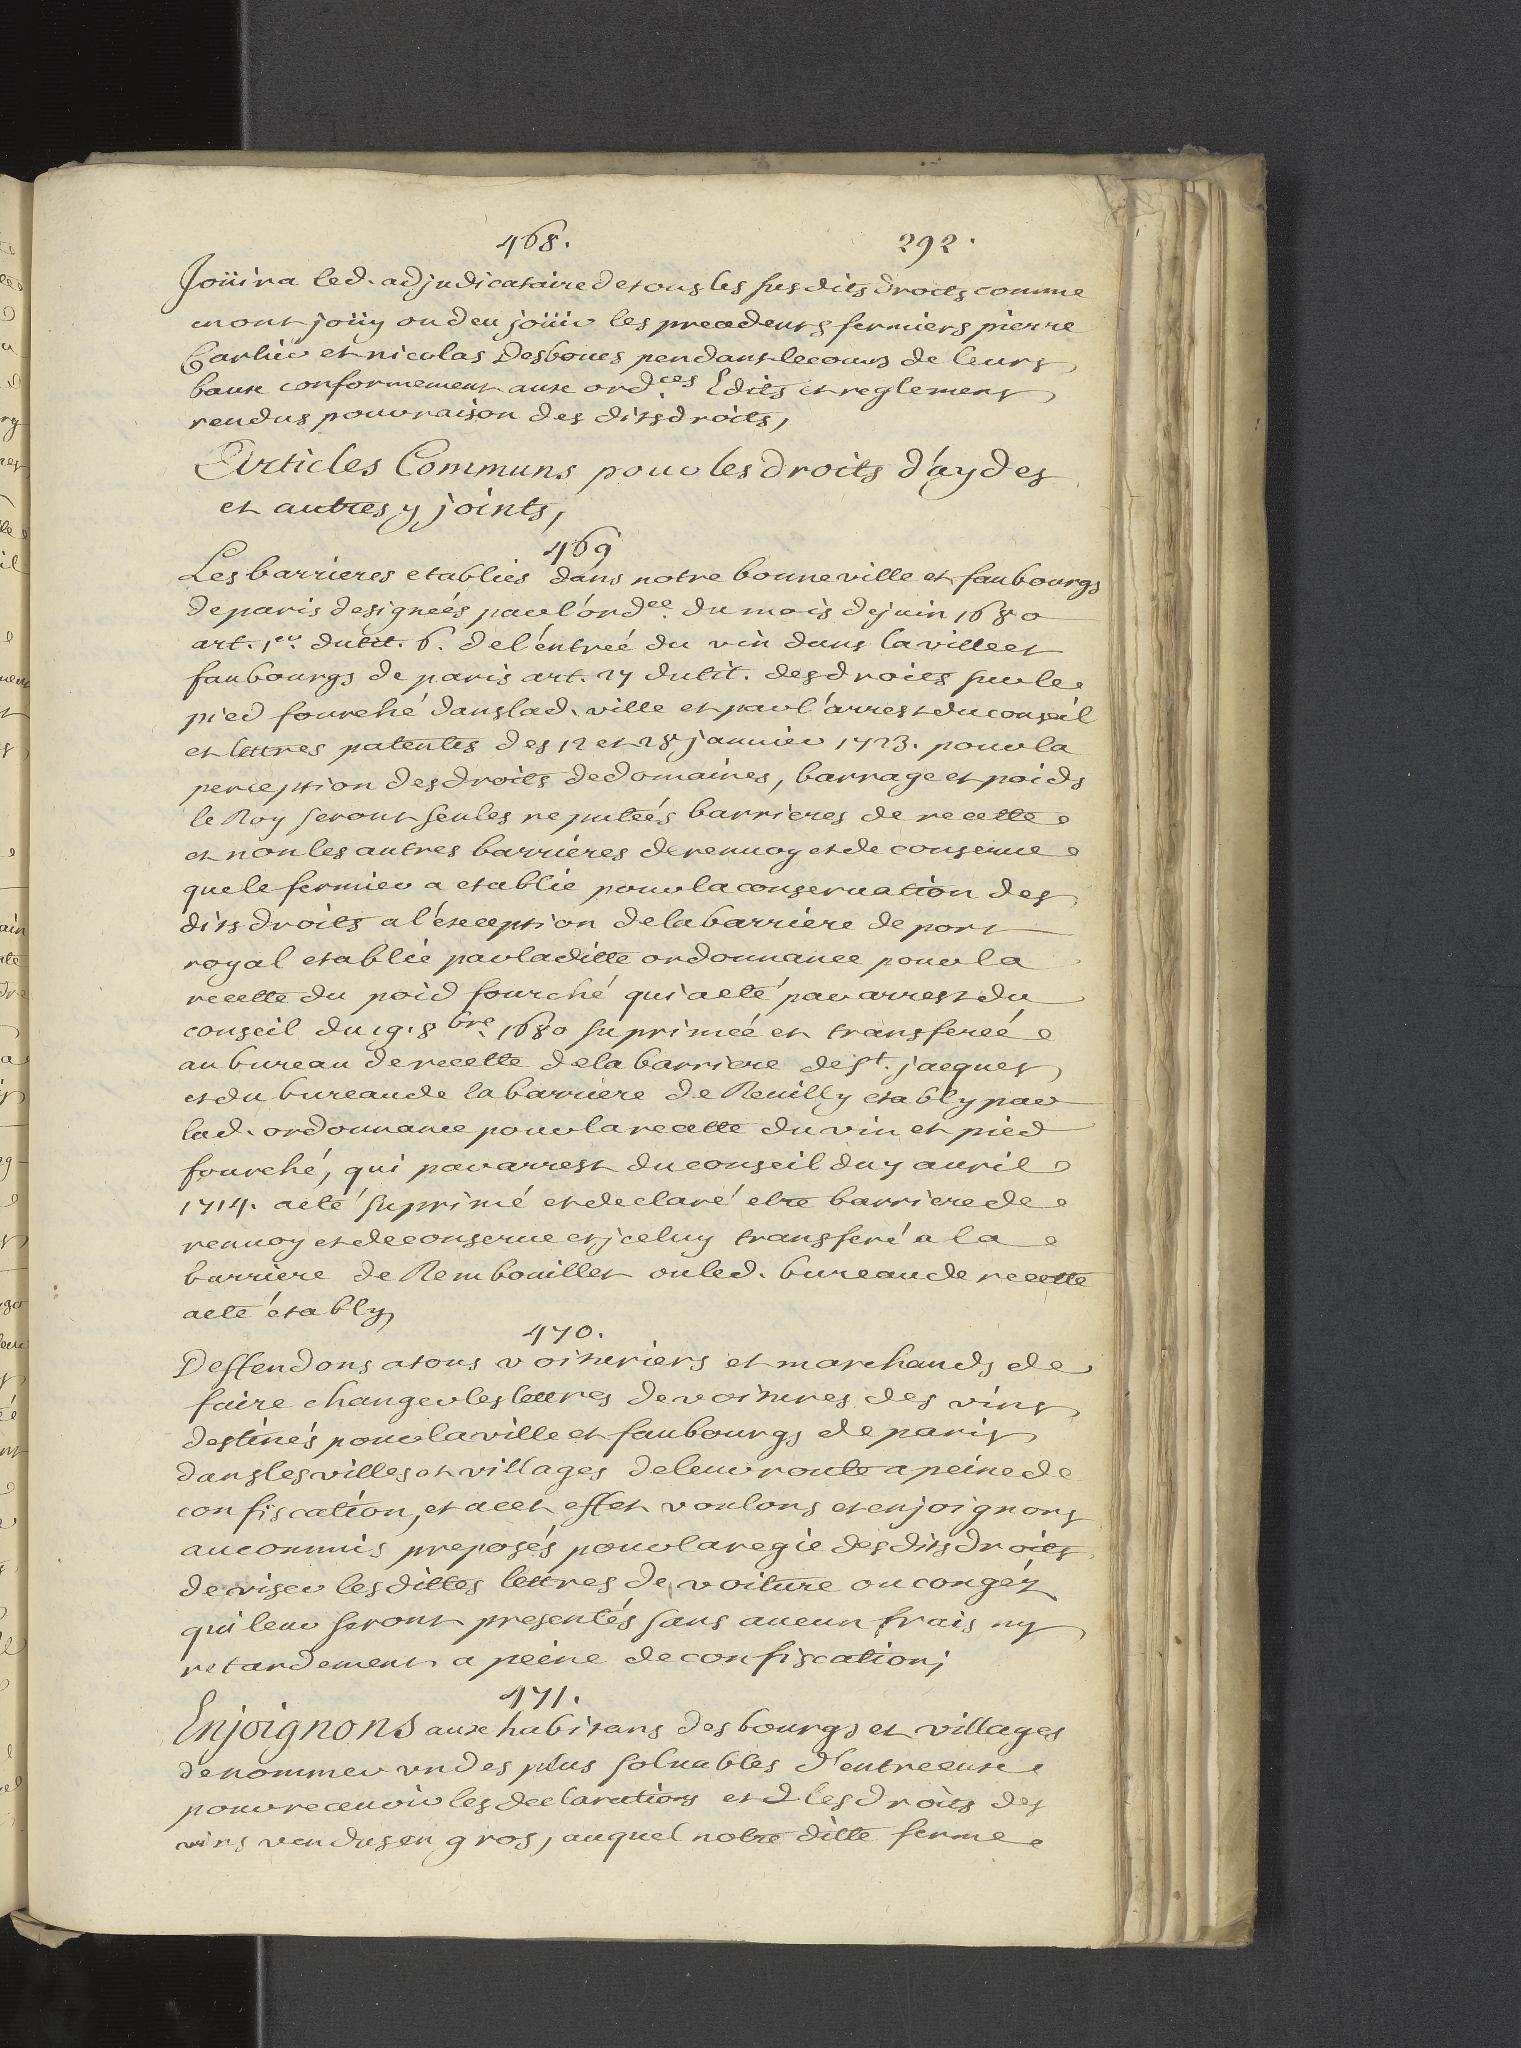 468. 292.
Joüira led. adjudicataire de tous les susdits droits comme
en ont joüy ou deu joüir les precedents fermiers pierre
Carlier et nicolas Desboues pendant le cours de leurs
baux conformement aux ord.ces Edits et reglements
rendus pour raison des dits droits,
Articles Communs pour les droits d'aydes
et autres y joints,
469
Les barrieres etablies dans notre bonne ville et faubourgs
de paris designeés par l'ord.ce du mois de juin 1680
art. 1er. du tit. 6. de l'entreé du vin dans la ville et
faubourgs de paris art. 27 du tit. des droits sur le
pied fourché dans lad. ville et par l'arrest du conseil
et lettres patentes des 12 et 28 janvier 1723. pour la
perception des droits de domaines, barrage et poids
le Roy seront seules reputeés barrieres de recette
et non les autres barrieres de renvoy et de conserve
que le fermier a etablie pour la conservation des
dits droits a l'exception de la barriere de port
royal etablie par la ditte ordonnance pour la
recette du poid fourché qui a eté par arrest du
conseil du 19. 8bre. 1680 suprimeé et transfereé
au bureau de recette de la barriere de St. jacques
et du bureau de la barriere de Reuilly etably par
lad. ordonnance pour la recette du vin et pied
fourché, qui par arrest du conseil du 7 auril
1714. a eté suprimé et declaré etre barriere de
renvoy et de conserve et jceluy transferé a la
barriere de Rembouillet ou led. bureau de recette
a eté étably
470.
Deffendons a tous voituriers et marchands de
faire changer les lettres de voitures des vins
destinés pour la ville et faubourgs de paris
dans les villes et villages de leur route a peine de
confiscation, et a cet effet voulons et enjoignons
au commis preposés pour la regie des dits droits
de viser les dittes lettres de voiture ou congéz
qui leur seront presentés sans aucun frais ny
retardement a peine de confiscation;
471.
Enjoignons aux habitans des bourgs et villages
de nommer un des plus soluables d'entre eux
pour recevoir les declarations et les droits des
vins vendus en gros, auquel notre ditte ferme